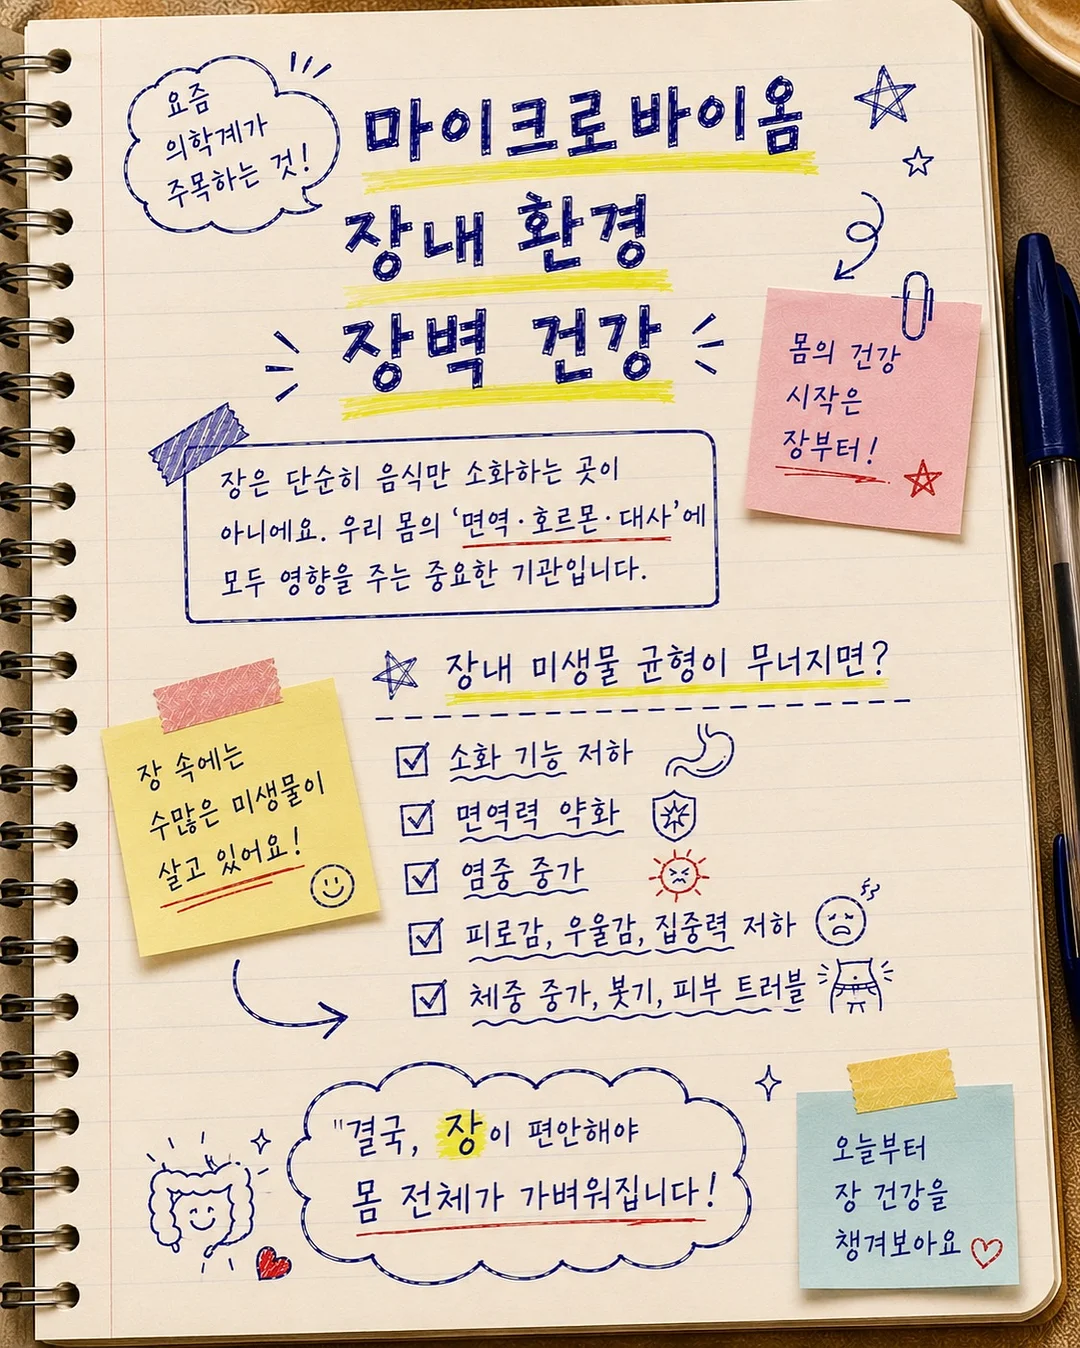 요즘
의학계가
주목하는 것!
마이크로바이옴
장내 환경
장벽 건강
몸의 건강
시작은
장부터!
장은 단순히 음식만 소화하는 곳이
아니에요. 우리 몸의 '면역·호르몬·대사'에
모두 영향을 주는 중요한 기관입니다.
장 속에는
수많은 미생물이
살고 있어요!
장내 미생물 균형이 무너지면?
소화 기능 저하
면역력 약화
염증 증가
피로감, 우울감, 집중력 저하
체중 증가, 붓기, 피부 트러블
"결국, 장이 편안해야
몸 전체가 가벼워집니다!
오늘부터
장 건강을
챙겨보아요